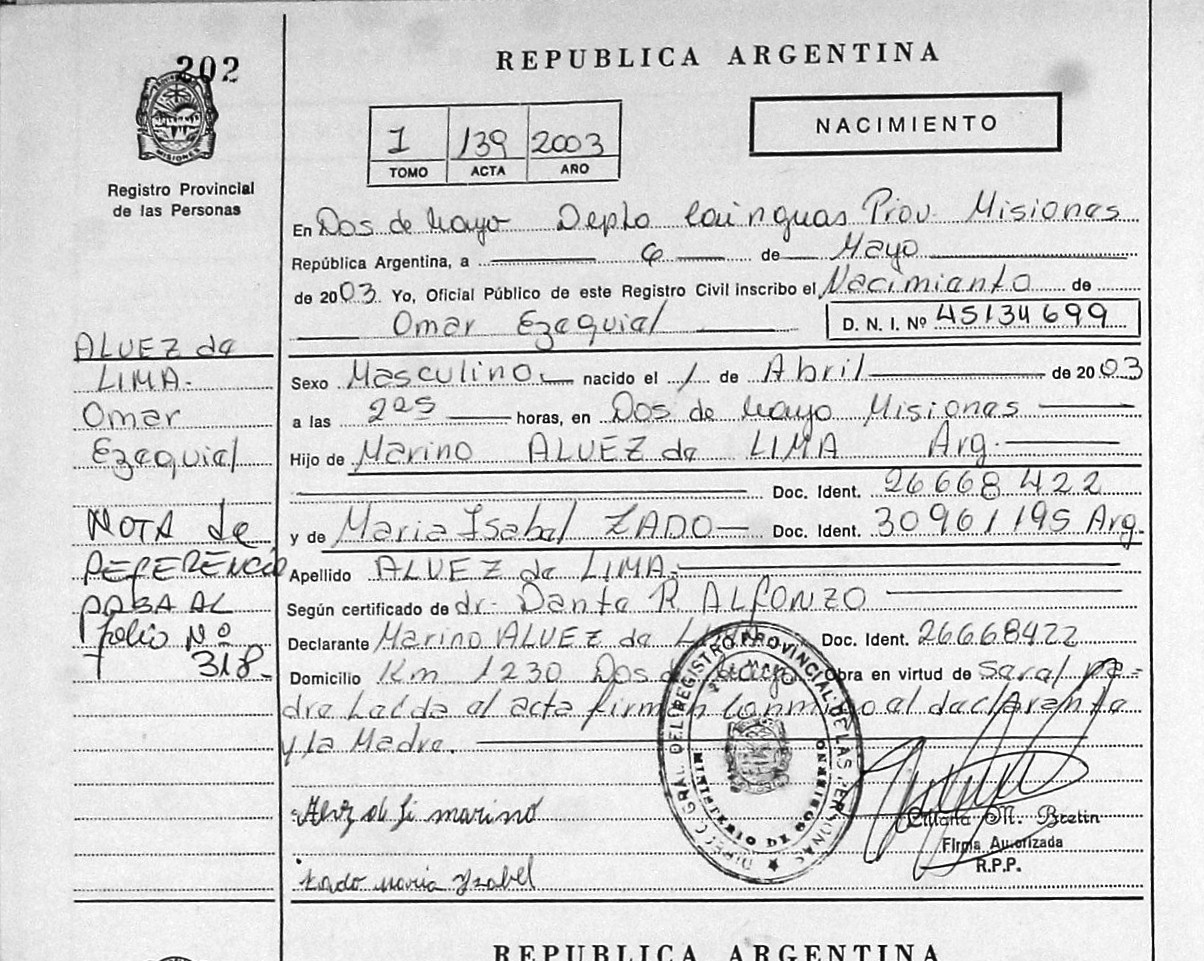 202
REPUBLICA ARGENTINA
MISIONES
Registro Provincial
de las Personas
I 139 2003
TOMO ACTA AÑO
NACIMIENTO
En Dos de Mayo Depto Cainguas Prov. Misiones
República Argentina, a 6 de Mayo
de 2003 Yo, Oficial Público de este Registro Civil inscribo el Nacimiento de
Omar Ezequiel D. N. I. Nº 45134699
ALVEZ de
LIMA.
Omar
Ezequiel
Sexo Masculino nacido el 1 de Abril de 2003
a las 2:05 horas, en Dos de Mayo Misiones
Hijo de Marino ALVEZ de LIMA Arg.
Doc. Ident. 26668422
y de Maria Isabel ZADO Doc. Ident. 30961195 Arg.
NOTA de
REFERENCIA
PASA AL
folio Nº
318
Apellido ALVEZ de LIMA.
Según certificado de dr. Dante R ALFONZO
Declarante Marino ALVEZ de LIMA Doc. Ident. 26668422
Domicilio Km 1230 Dos de Mayo Obra en virtud de ser el pa-
dre Leída el acta firman conmigo el declarante
y la Madre.
DIRECC. GRAL DEL REGISTRO PROVINCIAL DE LAS PERSONAS
MINISTERIO DE GOBIERNO
marino
Firma Autorizada
R.P.P.
Zado maria Yzabel
REPUBLICA ARGENTINA